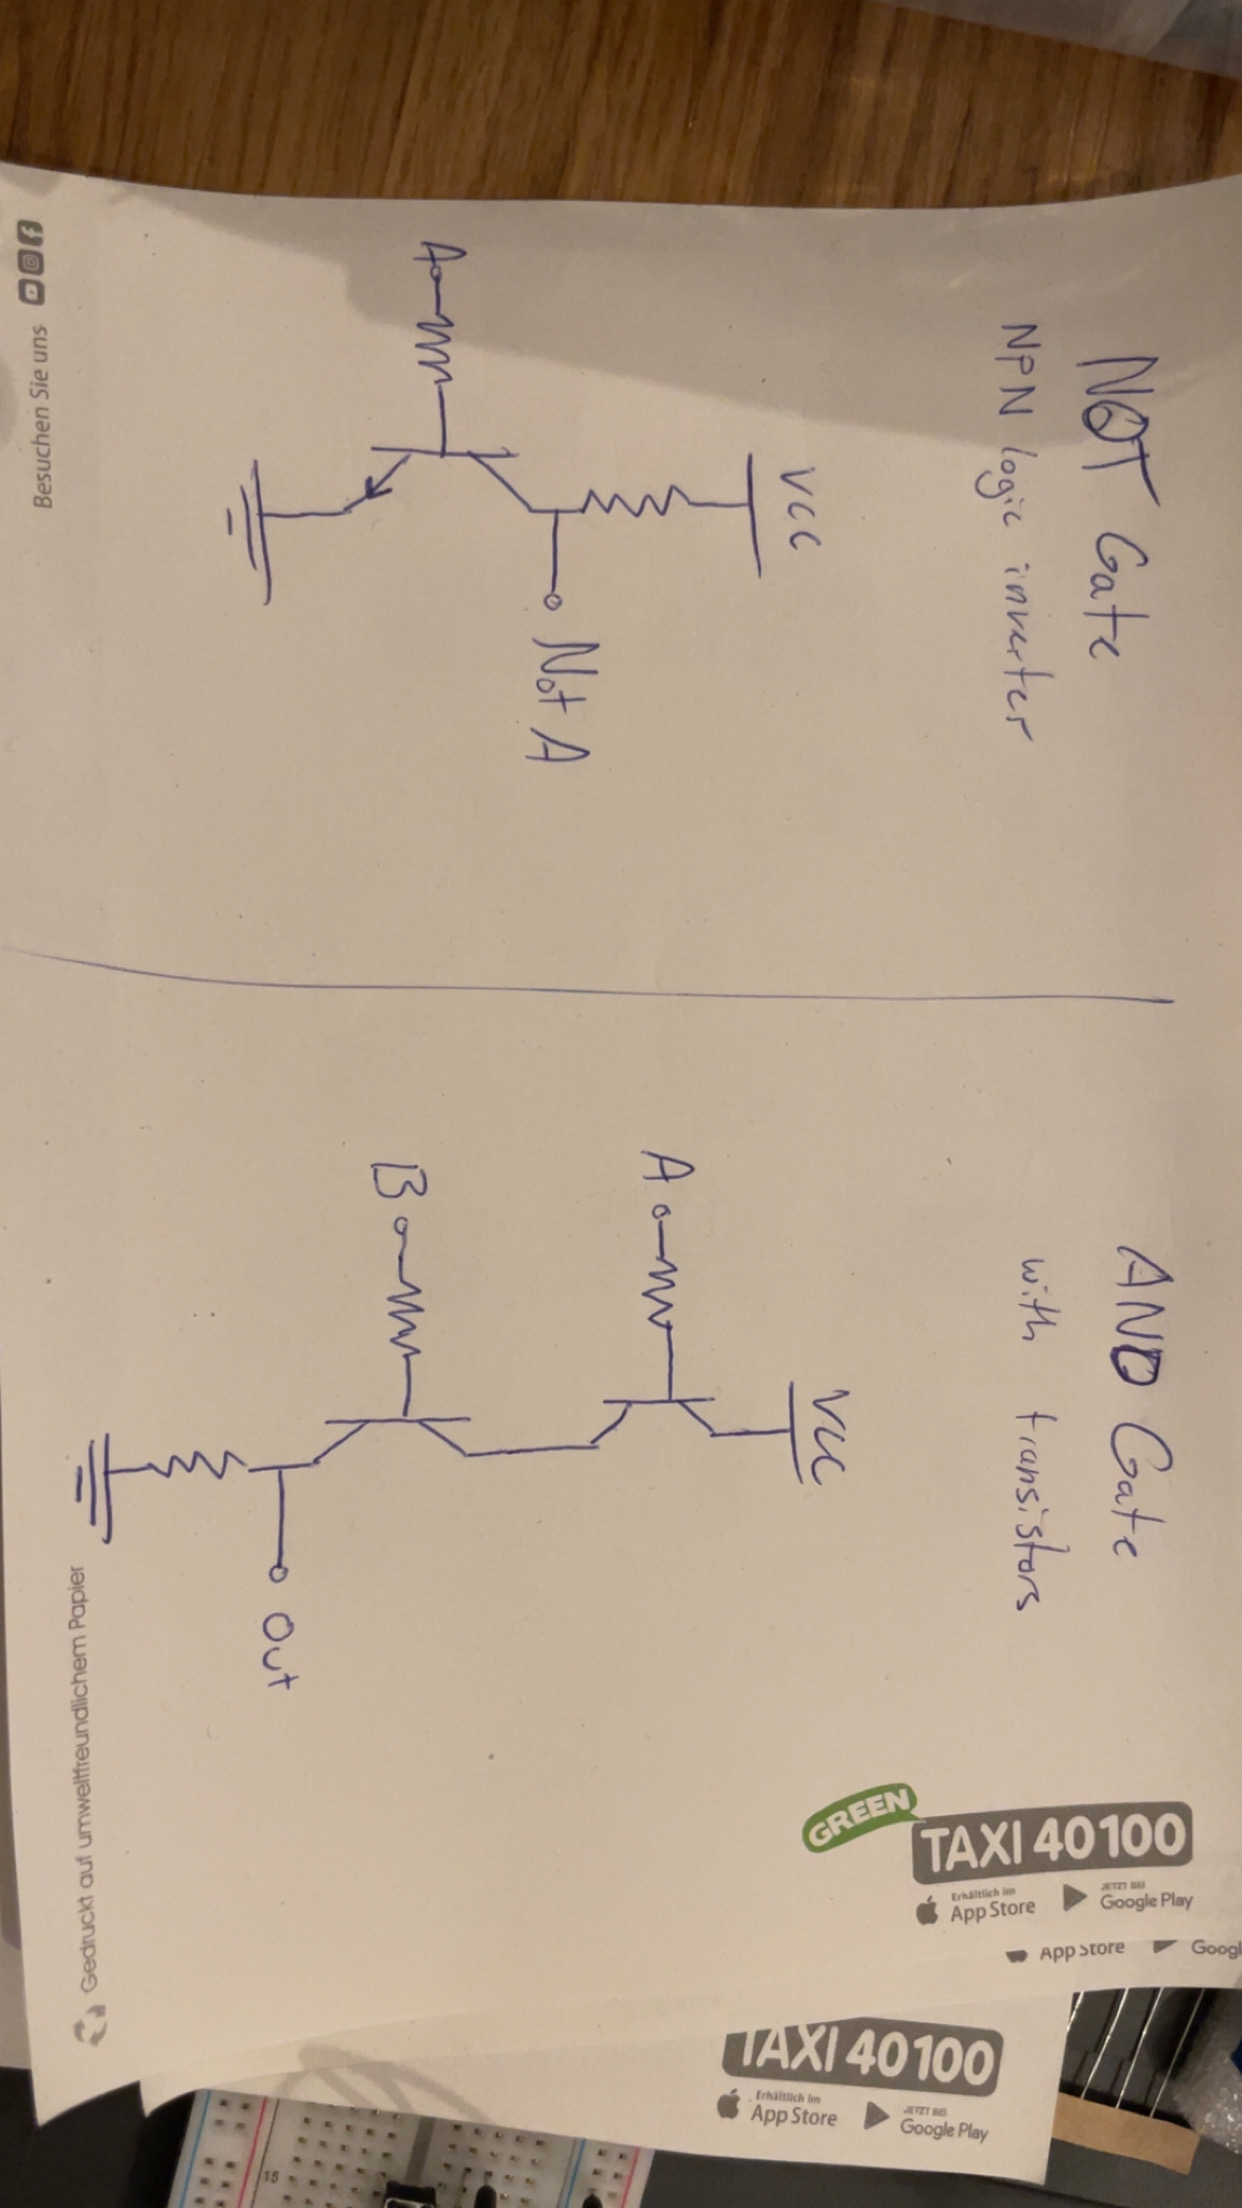 NOT Gate
NPN logic inverter
VCC
A
Not A
AND Gate
with transistors
VCC
A
B
Out
Besuchen Sie uns
Gedruckt auf umweltfreundlichem Papier
GREEN
TAXI 40100
Erhältlich im
App Store
JETZT BEI
Google Play
App Store
Googl
TAXI 40100
Erhältlich im
App Store
JETZT BEI
Google Play
15